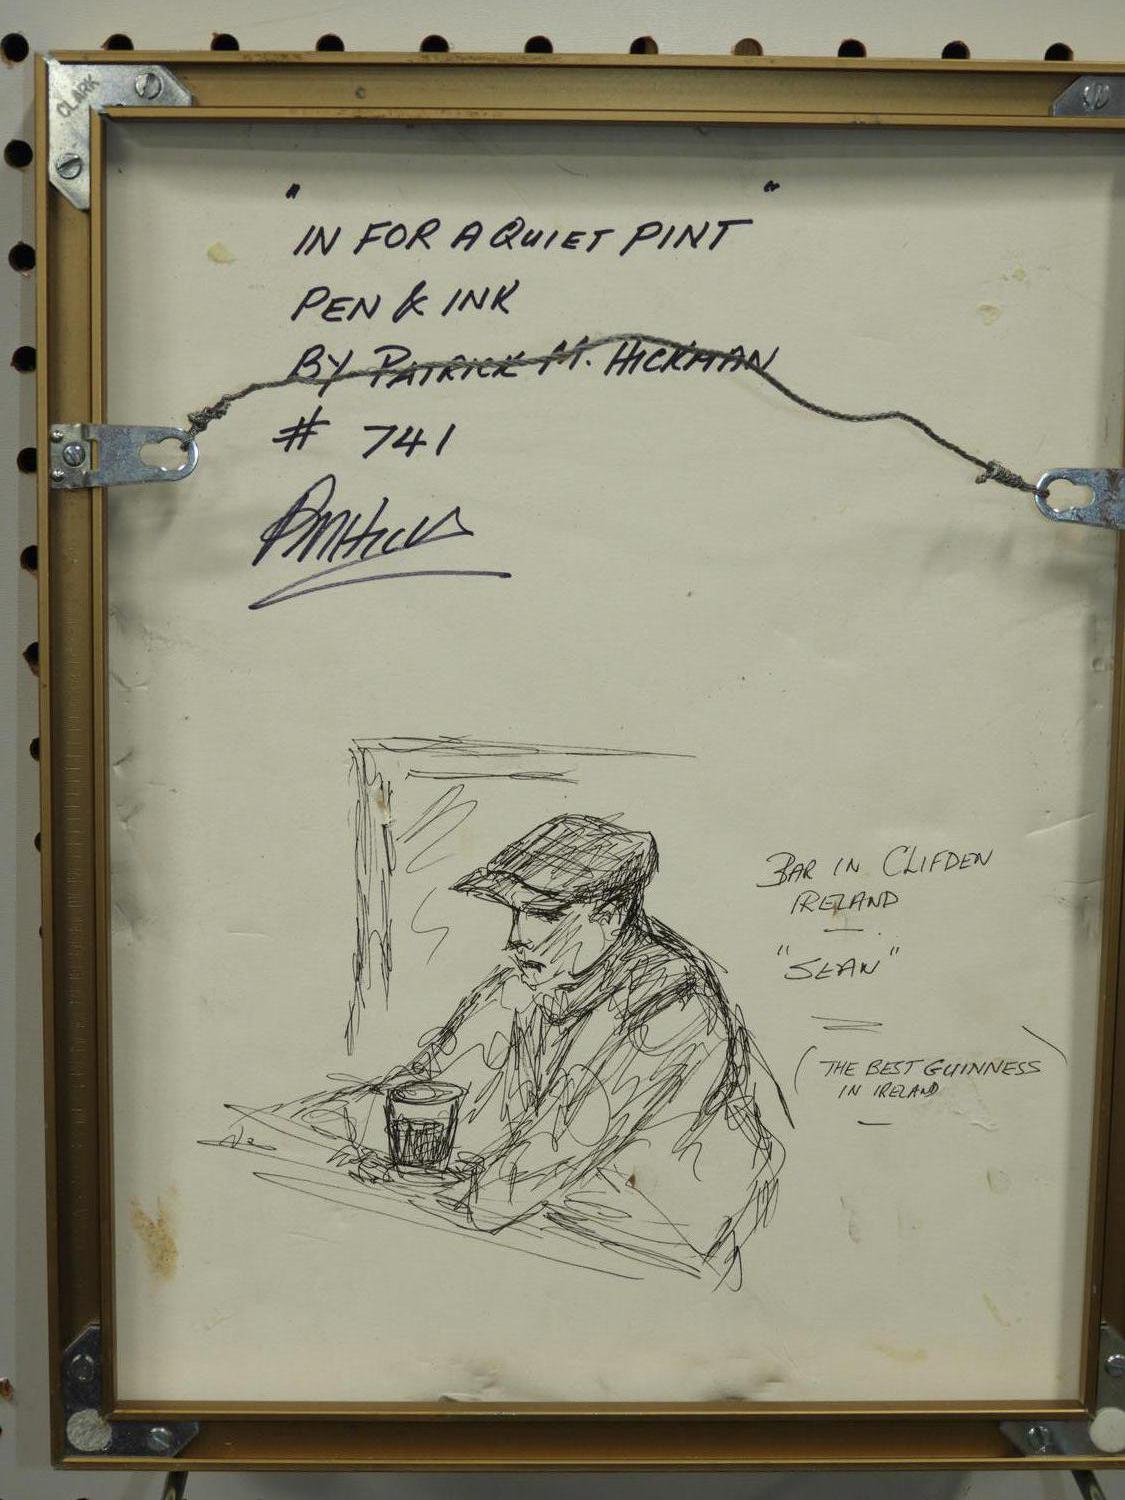 CLARK
" IN FOR A QUIET PINT "
PEN & INK
BY PATRICK M. HICKMAN
# 741
BAR IN CLIFDEN
IRELAND
"SEAN"
(THE BEST GUINNESS
IN IRELAND)